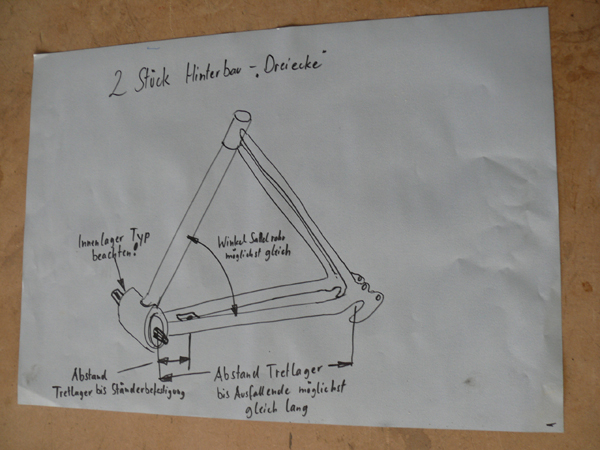 2 Stück Hinterbau - „Dreiecke"
Innenlager Typ
beachten!
Winkel Sattelrohr
möglichst
gleich
Abstand
Tretlager bis Ständerbefestigung
Abstand Tretlager
bis Ausfallende möglichst
gleich lang